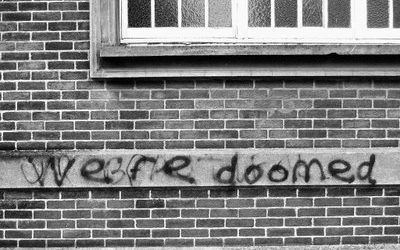 We're doomed